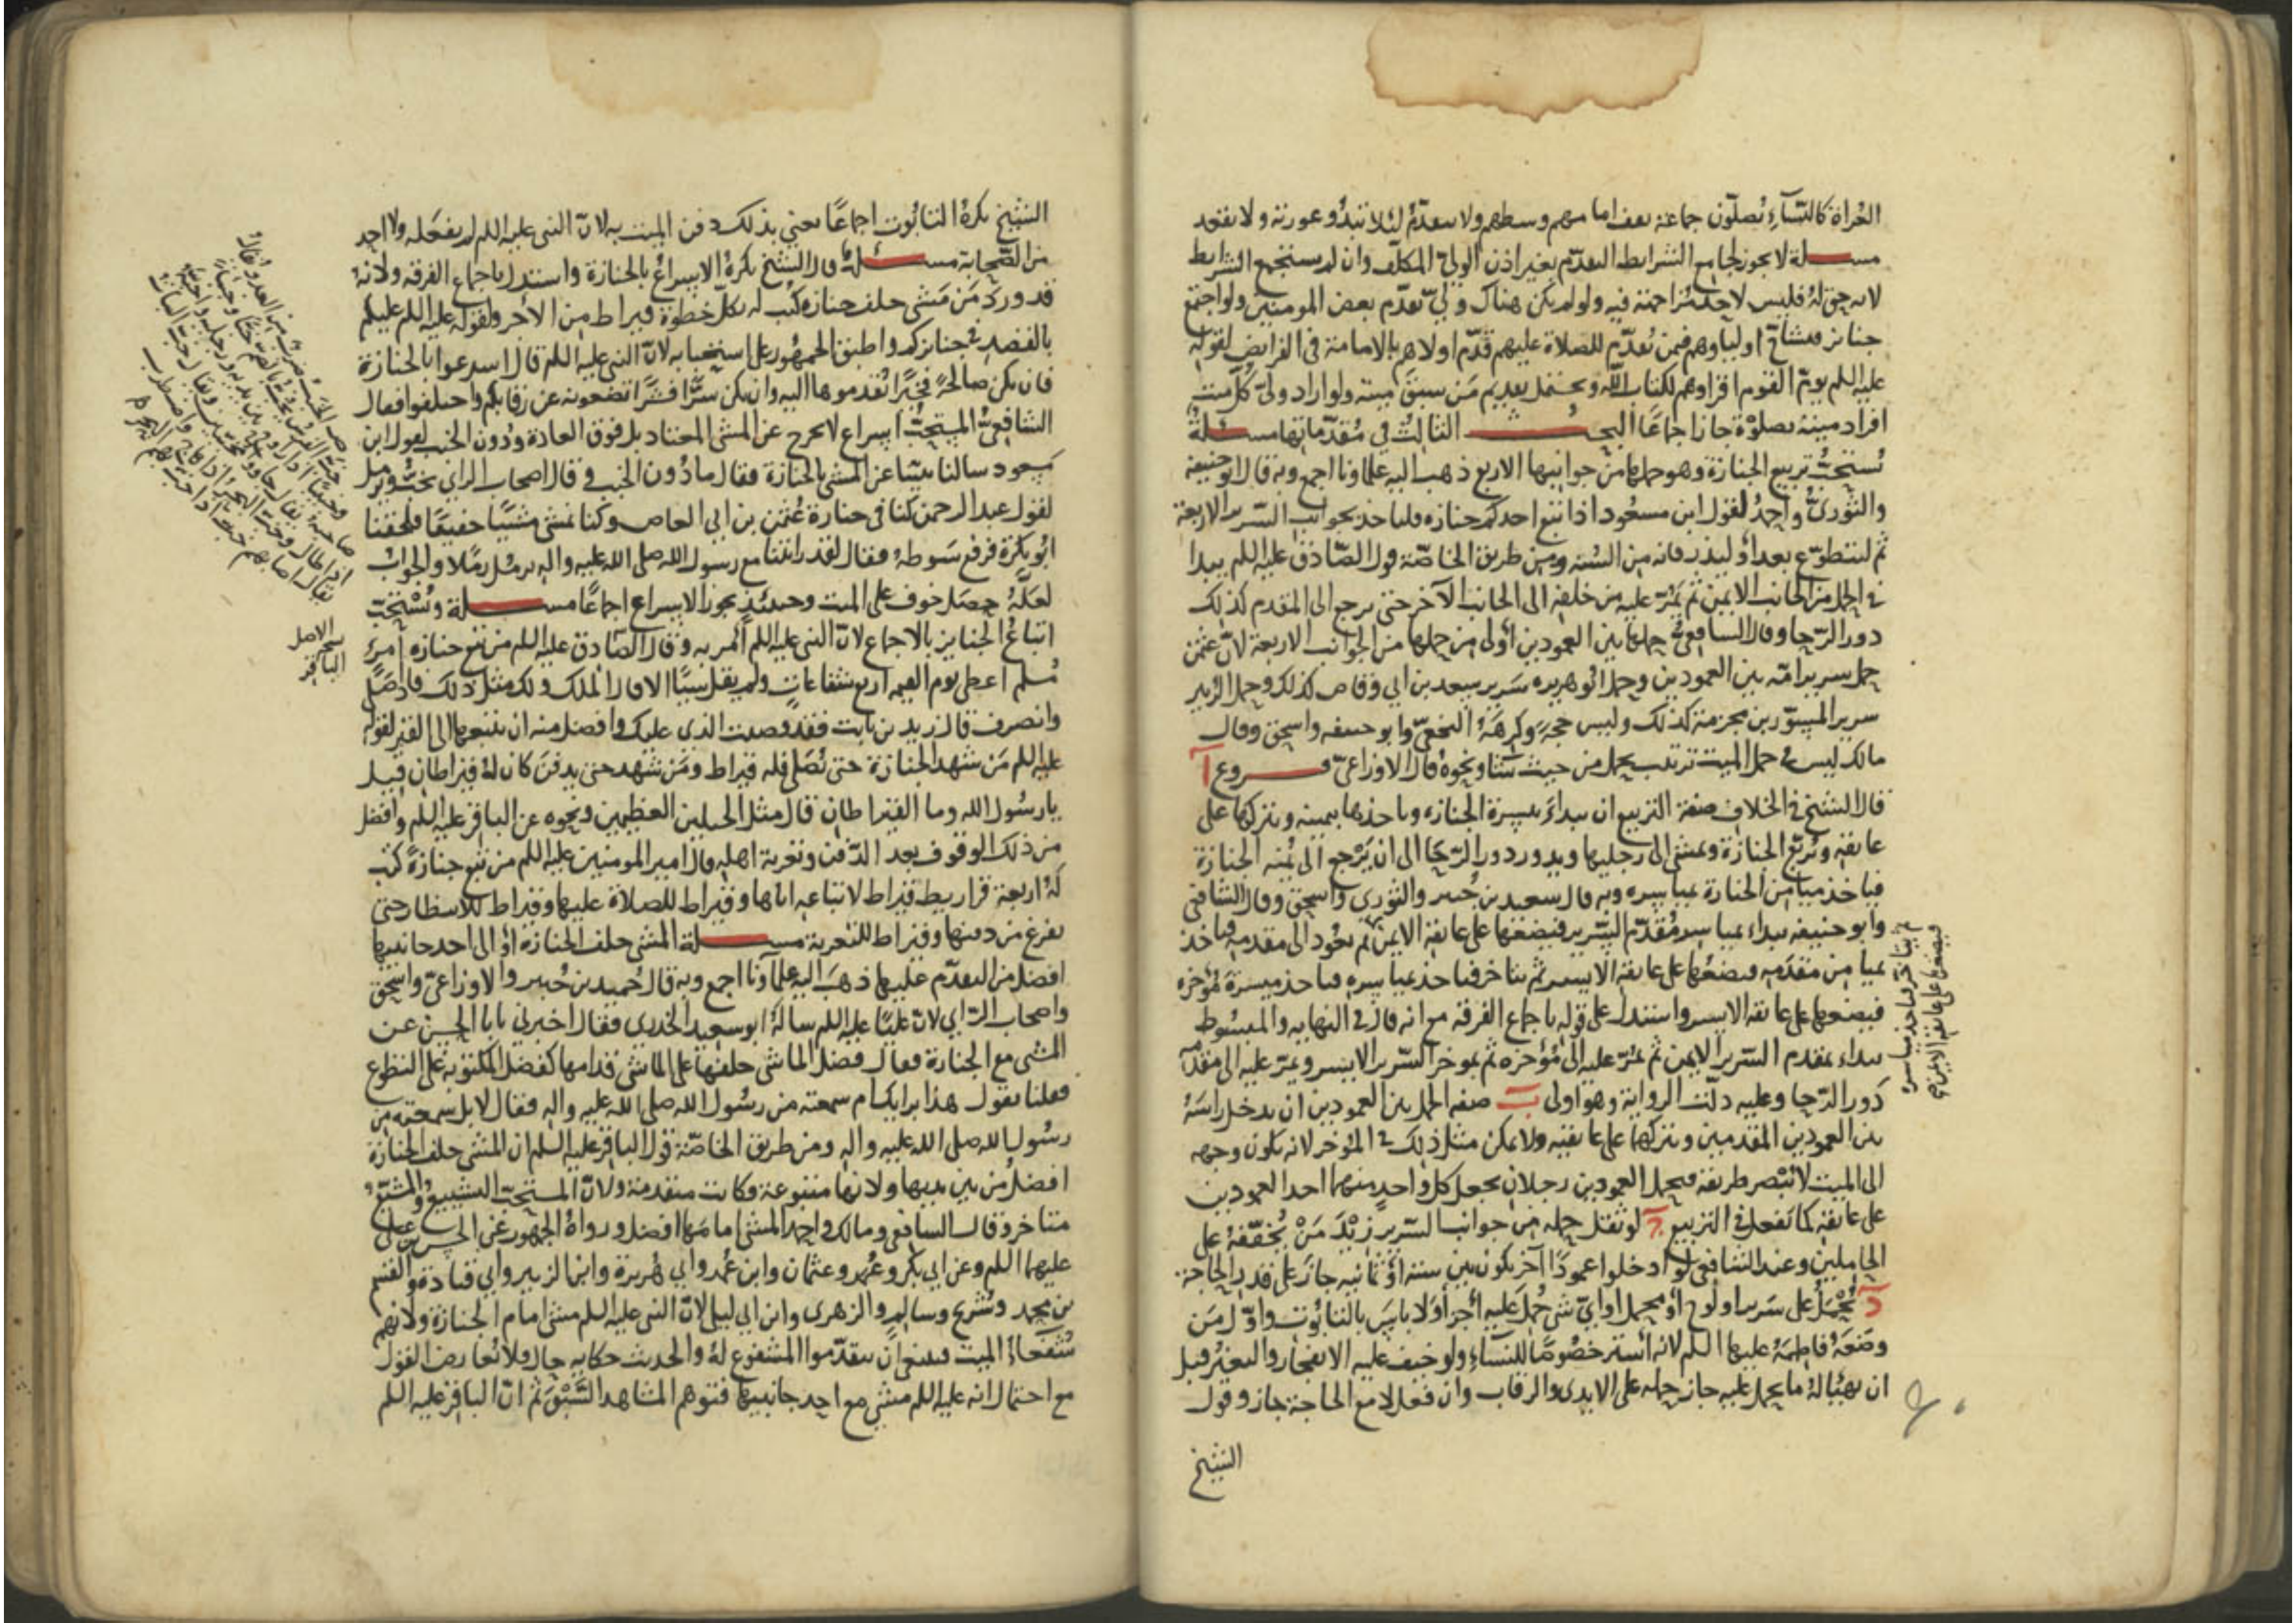 العراة كالنساء يصلون جماعة يقف امامهم وسطهم ولا يتقدم لئلا تبدو عورته ولا يقعد
مسـلة لا يجوز لجامع الشرايط التقدم بغير اذن الولي المكلف وان لم يستجمع الشرايط
لانه حق له فليس لاحد مزاحمته فيه ولو لم يكن هناك ولي تقدم بعض المومنين ولو اجتمع
جنايز فتشاح اولياوهم فيمن يقدم للصلاة عليهم قدم اولاهم بالامامة في الفرايض لقوله
عليه السلم يوم القوم اقراوهم لكتاب الله ويحتمل تقديم من سبق ميته ولو اراد ولي كل ميت
افراد ميته بصلوة جاز اجماعًا البحـث الثالث في مقدماتها مسـئلة
يستحب تربيع الجنازة وهو حملها من جوانبها الاربع ذهب اليه علماونا اجمع وبه قال ابو حنيفة
والثوري واحمد لقول ابن مسعود اذا تبع احدكم جنازه فلياخذ بجوانب السرير الاربعة
ثم ليتطوع بعد او ليذر فانه من السنه ومن طريق الخاصة قول الصادق عليه السلم يبدا
في الحمل من الجانب الايمن ثم يمر عليه من خلفه الى الجانب الآخر حتى يرجع الى المقدم كذلك
دور الرحا وقال الشافعي حملها بين العمودين أولى من حملها من الجوانب الاربعة لان عثمن
حمل سرير امه بين العمودين وحمل ابو هريره سرير سعد بن ابي وقاص كذلك وحمل الزبير
سرير المسور بن مخرمة كذلك وليس حجة وكرهه النخعي وابو حنيفه واسحق وقال
مالك ليس في حمل الميت ترتيب يحمل من حيث شا ونحوه قال الاوزاعي فـروع آ
قال الشيخ في الخلاف صفة التربيع ان يبداء بيسرة الجنازه وياخذها بيمينه ويتركها على
عاتقه ويربع الجنازة ويمشي الى رجليها ويدور دور الرحا الى ان يرجع الى يمنه الجنازة
فياخذ ميامن الجنازة بمياسره وبه قال سعيد بن جبير والثوري واسحق وقال الشافعي
وابو حنيفه يبداء بمياسر مقدم السرير فيضعها على عاتقه الايمن ثم يعود الى مقدمه فياخذ
بميامن مقدمه فيضعها على عاتقه الايسر ثم يتاخر فياخذ بمياسره فياخذ ميسرة مؤخره
فيضعها على عاتقه الايسر واستدل على قوله باجماع الفرقه مع انه قال في النهايه والمبسوط
يبداء بمقدم السرير الايمن ثم يمر عليه الى مؤخره ثم بموخر السرير الايسر ويمر عليه الى مقدمه
دور الرحا وعليه دلت الرواية وهو اولى ب صفه الحمل بين العمودين ان يدخل راسه
بين العمودين المقدمين ويتركهما على عاتقيه ولا يمكن مثل ذلك في المؤخر لانه يكون وجهه
الى الميت لا يبصر طريقه فيحمل العمودين رجلان يجعل كل واحد منهما احد العمودين
على عاتقه كما يفعل في التربيع ج لو ثقل حمله من جوانب السرير زيد من يخففه على
الحاملين وعند الشافعي لو ادخلوا عمودًا آخر يكون بين ستة أو ثمانيه جاز على قدر الحاجة
د يحمل على سرير او لوح أو محمل او اي شي حمل عليه أجزأ ولا باس بالتابوت واول من
وضعه فاطمة عليها السلم لانه أستر خصوصًا للنساء ولو خيف عليه الانفجار والتغير قبل
ان يهيأ له ما يحمل عليه جاز حمله على الايدي والرقاب وان فعل لا مع الحاجة جاز وقول
الشيخ
ثم يتاخر فياخذ مياسره
فيضعها على عاتقه الايمن ثم
الشيخ يكره التابوت اجماعًا يعني بذلك دفن الميت به لان النبي عليه السلم لم يفعله ولا احد
من الصحابة مسـئلة قال الشيخ يكره الاسراع بالجنازة واستدل باجماع الفرقه ولانه
قد ورد من مشى خلف جنازه كتب له بكل خطوة قيراط من الأجر ولقوله عليه السلم عليكم
بالقصد في جنايزكم واطبق الجمهور على استحبابه لان النبي عليه السلم قال اسرعوا بالجنازة
فان تكن صالحةً فخيرًا تقدموها اليه وان يكن شرًا فشرًا تضعونه عن رقابكم واختلفوا فقال
الشافعي المستحب اسراع لا يخرج عن المشي المعتاد بل فوق العادة ودون الخبب لقول ابن
مسعود سالنا نبينا عن المشي بالجنازة فقال ما دون الخبب وقال اصحاب الراي يخب ويرمل
لقول عبد الرحمن كنا في جنازة عثمن بن ابي العاص وكنا نمشي مشيًا خفيفًا فلحقنا
ابو بكرة فرفع سوطه فقال لقد رايتنا مع رسول الله صلى الله عليه واله نرمل رملا والجواب
لعله حصل خوف على الميت وحينئذ يجوز الاسراع اجماعًا مسـلة ويستحب
اتباع الجنايز بالاجماع لان النبي عليه السلم أمر به وقال الصادق عليه السلم من تبع جنازه امرئ
مسلم اعطي يوم القيمه اربع شفاعات ولم يقل شيًا الا قال الملك ولك مثل ذلك فاذا صلى
وانصرف قال زيد بن ثابت فقد قضيت الذي عليك وافضل منه ان يتبعها الى القبر لقوله
عليه السلم من شهد الجنازة حتى تصلى فله قيراط ومن شهد حتى يدفن كان له قيراطان قيل
يا رسول الله وما القيراطان قال مثل الجبلين العظيمين ونحوه عن الباقر عليه السلم وافضل
من ذلك الوقوف بعد الدفن وتعزية اهله قال امير المومنين عليه السلم من تبع جنازةً كتب
له اربعة قراريط قيراط لاتباعه اياها وقيراط للصلاة عليها وقيراط للانتظار حتى
يفرغ من دفنها وقيراط للتعزية مسـلة المشي خلف الجنازة أو الى احد جانبيها
افضل من التقدم عليها ذهب اليه علماؤنا اجمع وبه قال سعيد بن جبير والاوزاعي واسحق
واصحاب الراي لان عليًا عليه السلم ساله ابو سعيد الخدري فقال اخبرني يا با الحسن عن
المشي مع الجنازة فقال فضل الماشي خلفها على الماشي قدامها كفضل المكتوبه على التطوع
فقلنا تقول هذا برايك ام سمعته من رسول الله صلى الله عليه واله فقال لا بل سمعته من
رسول الله صلى الله عليه واله ومن طريق الخاصة قول الباقر عليه السلم ان المشي خلف الجنازة
افضل من بين يديها ولانها متبوعة فكانت متقدمة ولان المستحب التشييع والمشيع
متاخر وقال الشافعي ومالك واحمد المشي امامها افضل ورواه الجمهور عن الحسن بن علي
عليهما السلم وعن ابي بكر وعمر وعثمان وابن عمر وابي هريرة وابن الزبير وابي قتادة والقسم
بن محمد وشريح وسالم والزهري وابن ابي ليلى لان النبي عليه السلم مشى امام الجنازة ولانهم
شفعاء الميت فينبغي أن يتقدموا المشفوع له والحديث حكايه حال فلا تعارض القول
مع احتمال انه عليه السلم مشى مع احد جانبيها فتوهم المشاهد السبق ثم ان الباقر عليه السلم